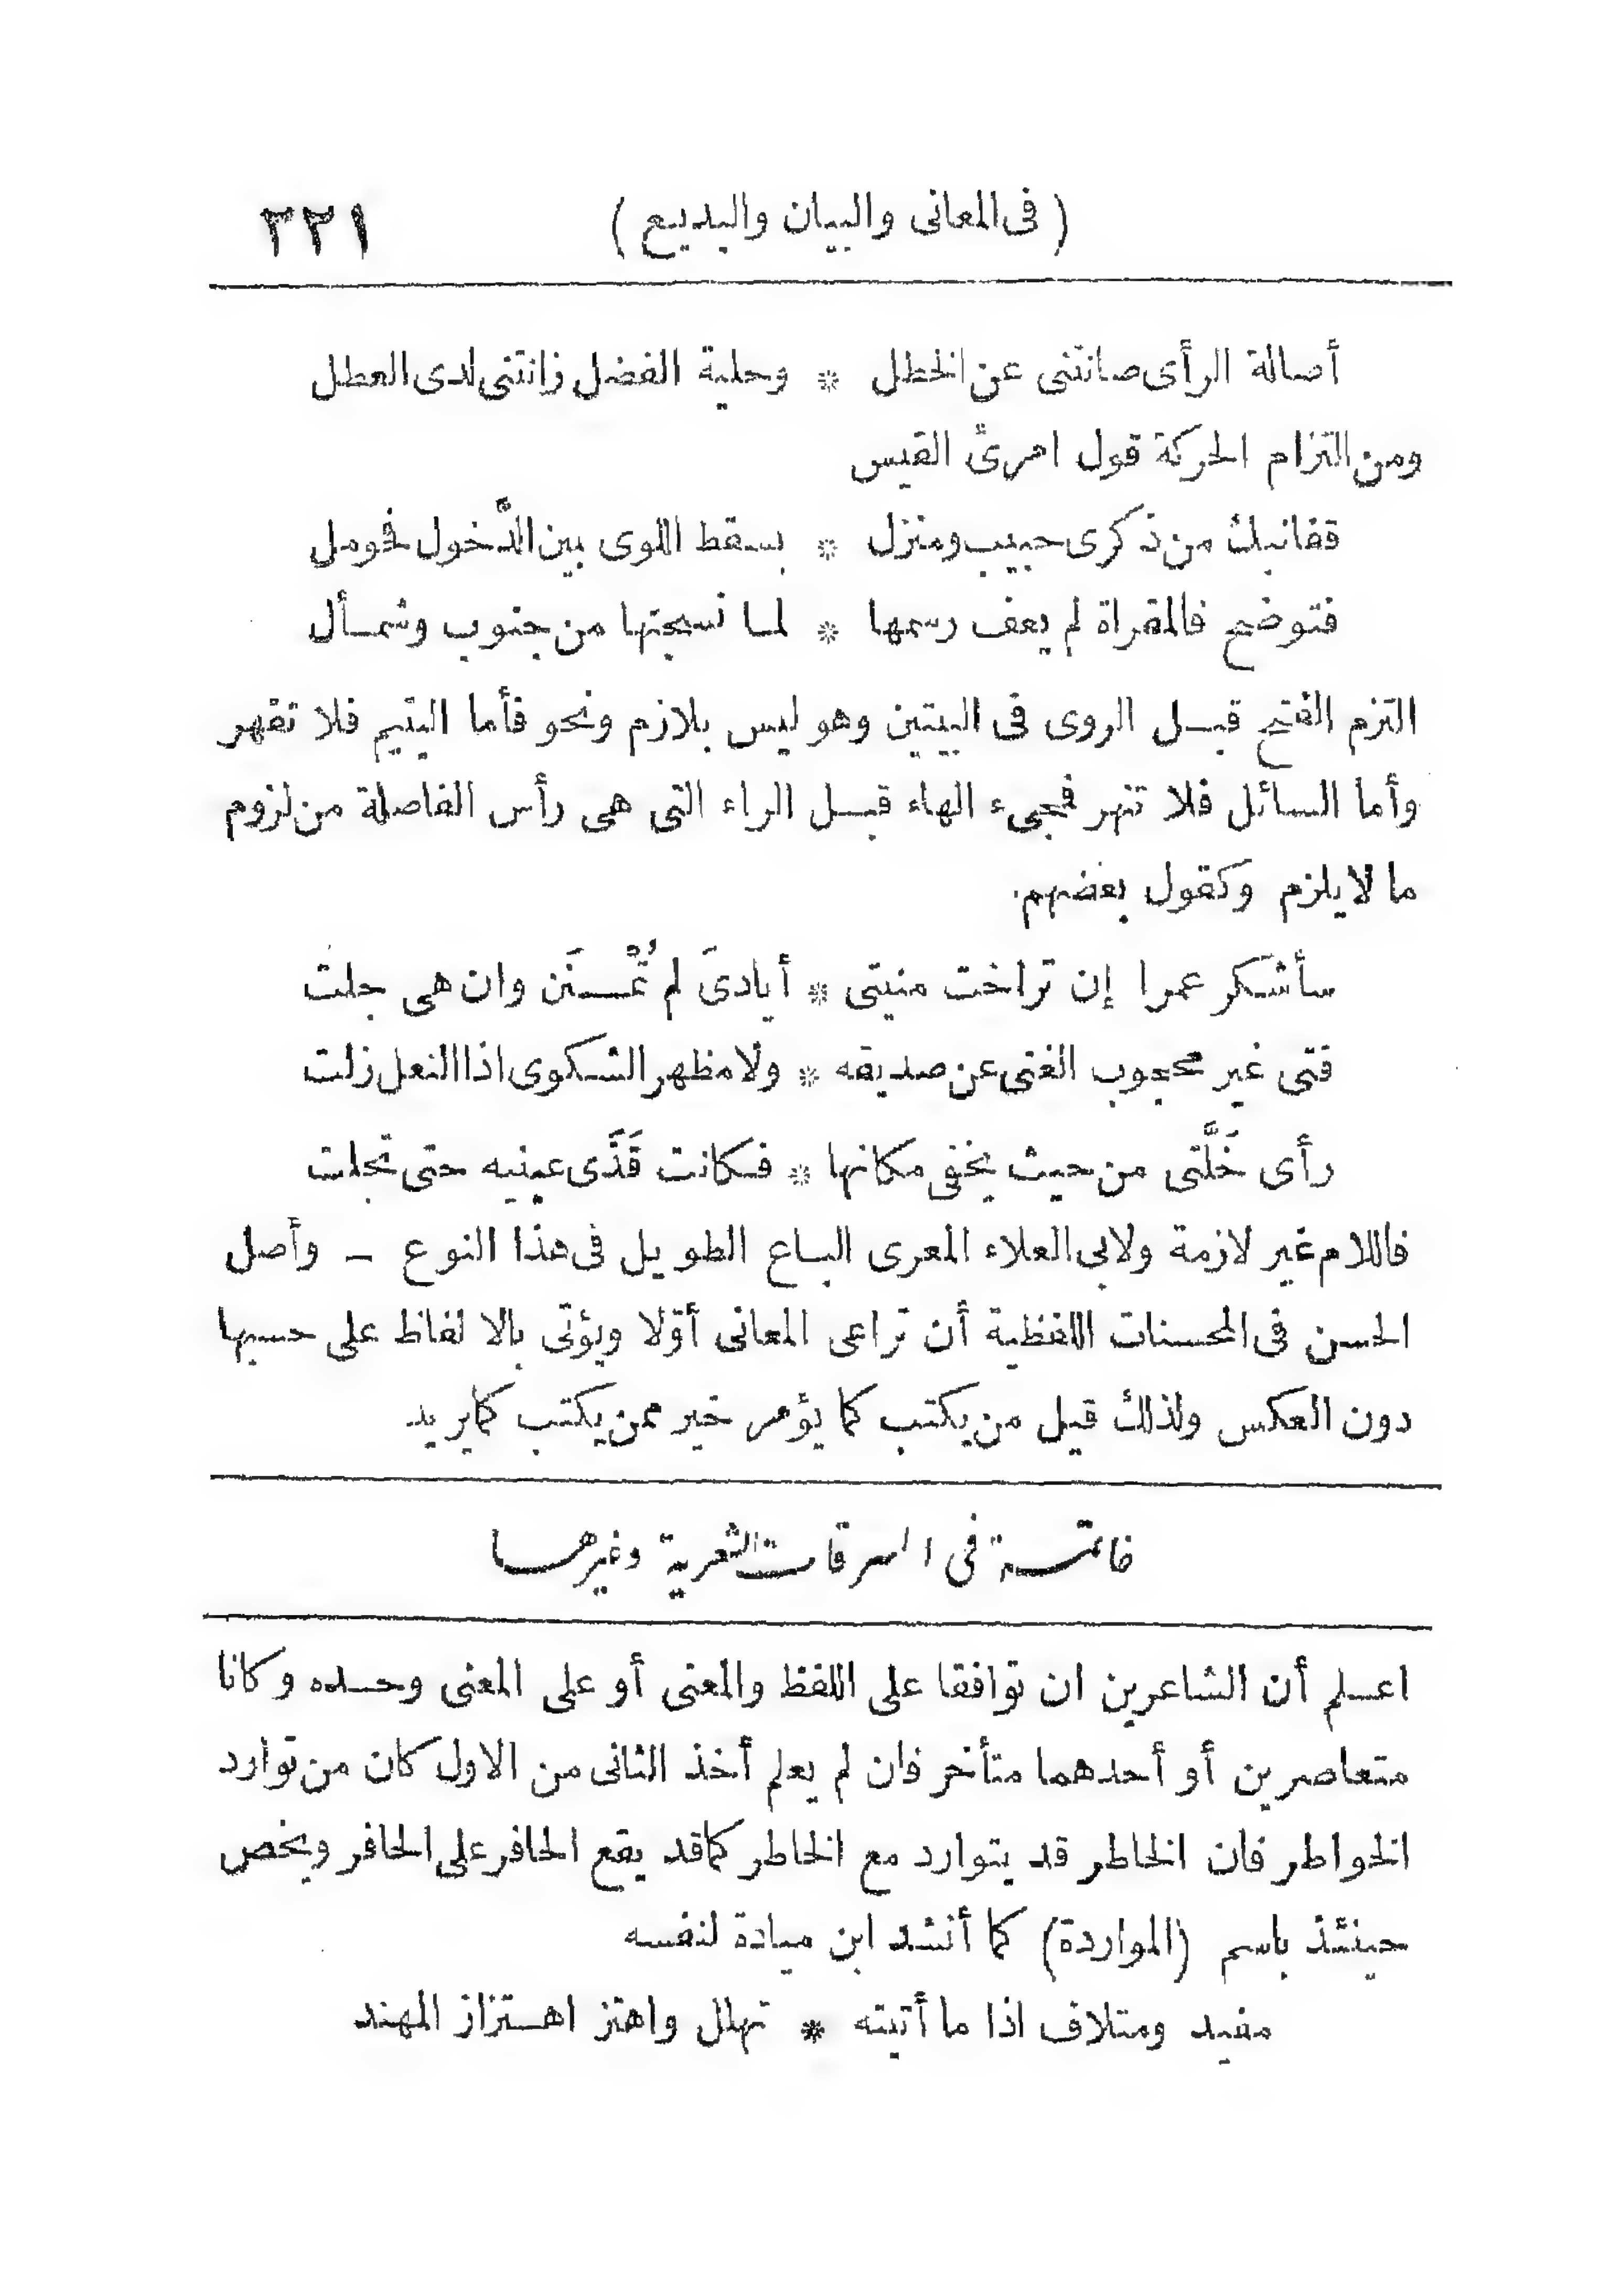 (فى المعانى والبيان والبديع) ٣٢١
أصالة الرأى صانتنى عن الخطل * وحلية الفضل زانتنى لدى العطل
ومن التزام الحركة قول امرئ القيس
قفانبك من ذكرى حبيب ومنزل * بسقط اللوى بين الدَّخول فحومل
فتوضح فالمقراة لم يعف رسمها * لما نسجتها من جنوب وشمأل
التزم الفتح قبل الروى فى البيتين وهو ليس بلازم ونحو فأما اليتيم فلا تقهر
وأما السائل فلا تنهر فمجىء الهاء قبل الراء التى هى رأس الفاصلة من لزوم
ما لا يلزم وكقول بعضهم
سأشكر عمرا إن تراخت منيتى * أيادىَ لم تُمْنَن وان هى جلت
فتى غير محجوب الغنى عن صديقه * ولا مظهر الشكوى اذا النعل زلت
رأى خَلَّتى من حيث يخفى مكانها * فكانت قَذَى عينيه حتى تجلت
فاللام غير لازمة ولابى العلاء المعرى الباع الطويل فى هذا النوع – وأصل
الحسن فى المحسنات اللفظية أن تراعى المعانى أوّلا ويؤتى بالالفاظ على حسبها
دون العكس ولذلك قيل من يكتب كما يؤمر خير ممن يكتب كما يريد
خاتمة فى السرقات الشعرية وغيرها
اعلم أن الشاعرين ان توافقا على اللفظ والمعنى أو على المعنى وحده وكانا
متعاصرين أو أحدهما متأخر فان لم يعلم أخذ الثانى من الاول كان من توارد
الخواطر فان الخاطر قد يتوارد مع الخاطر كما قد يقع الحافر على الحافر ويخص
حينئذ باسم (المواردة) كما أنشد ابن ميادة لنفسه
مفيد ومتلاف اذا ما أتيته * تهلل واهتز اهتزاز المهند